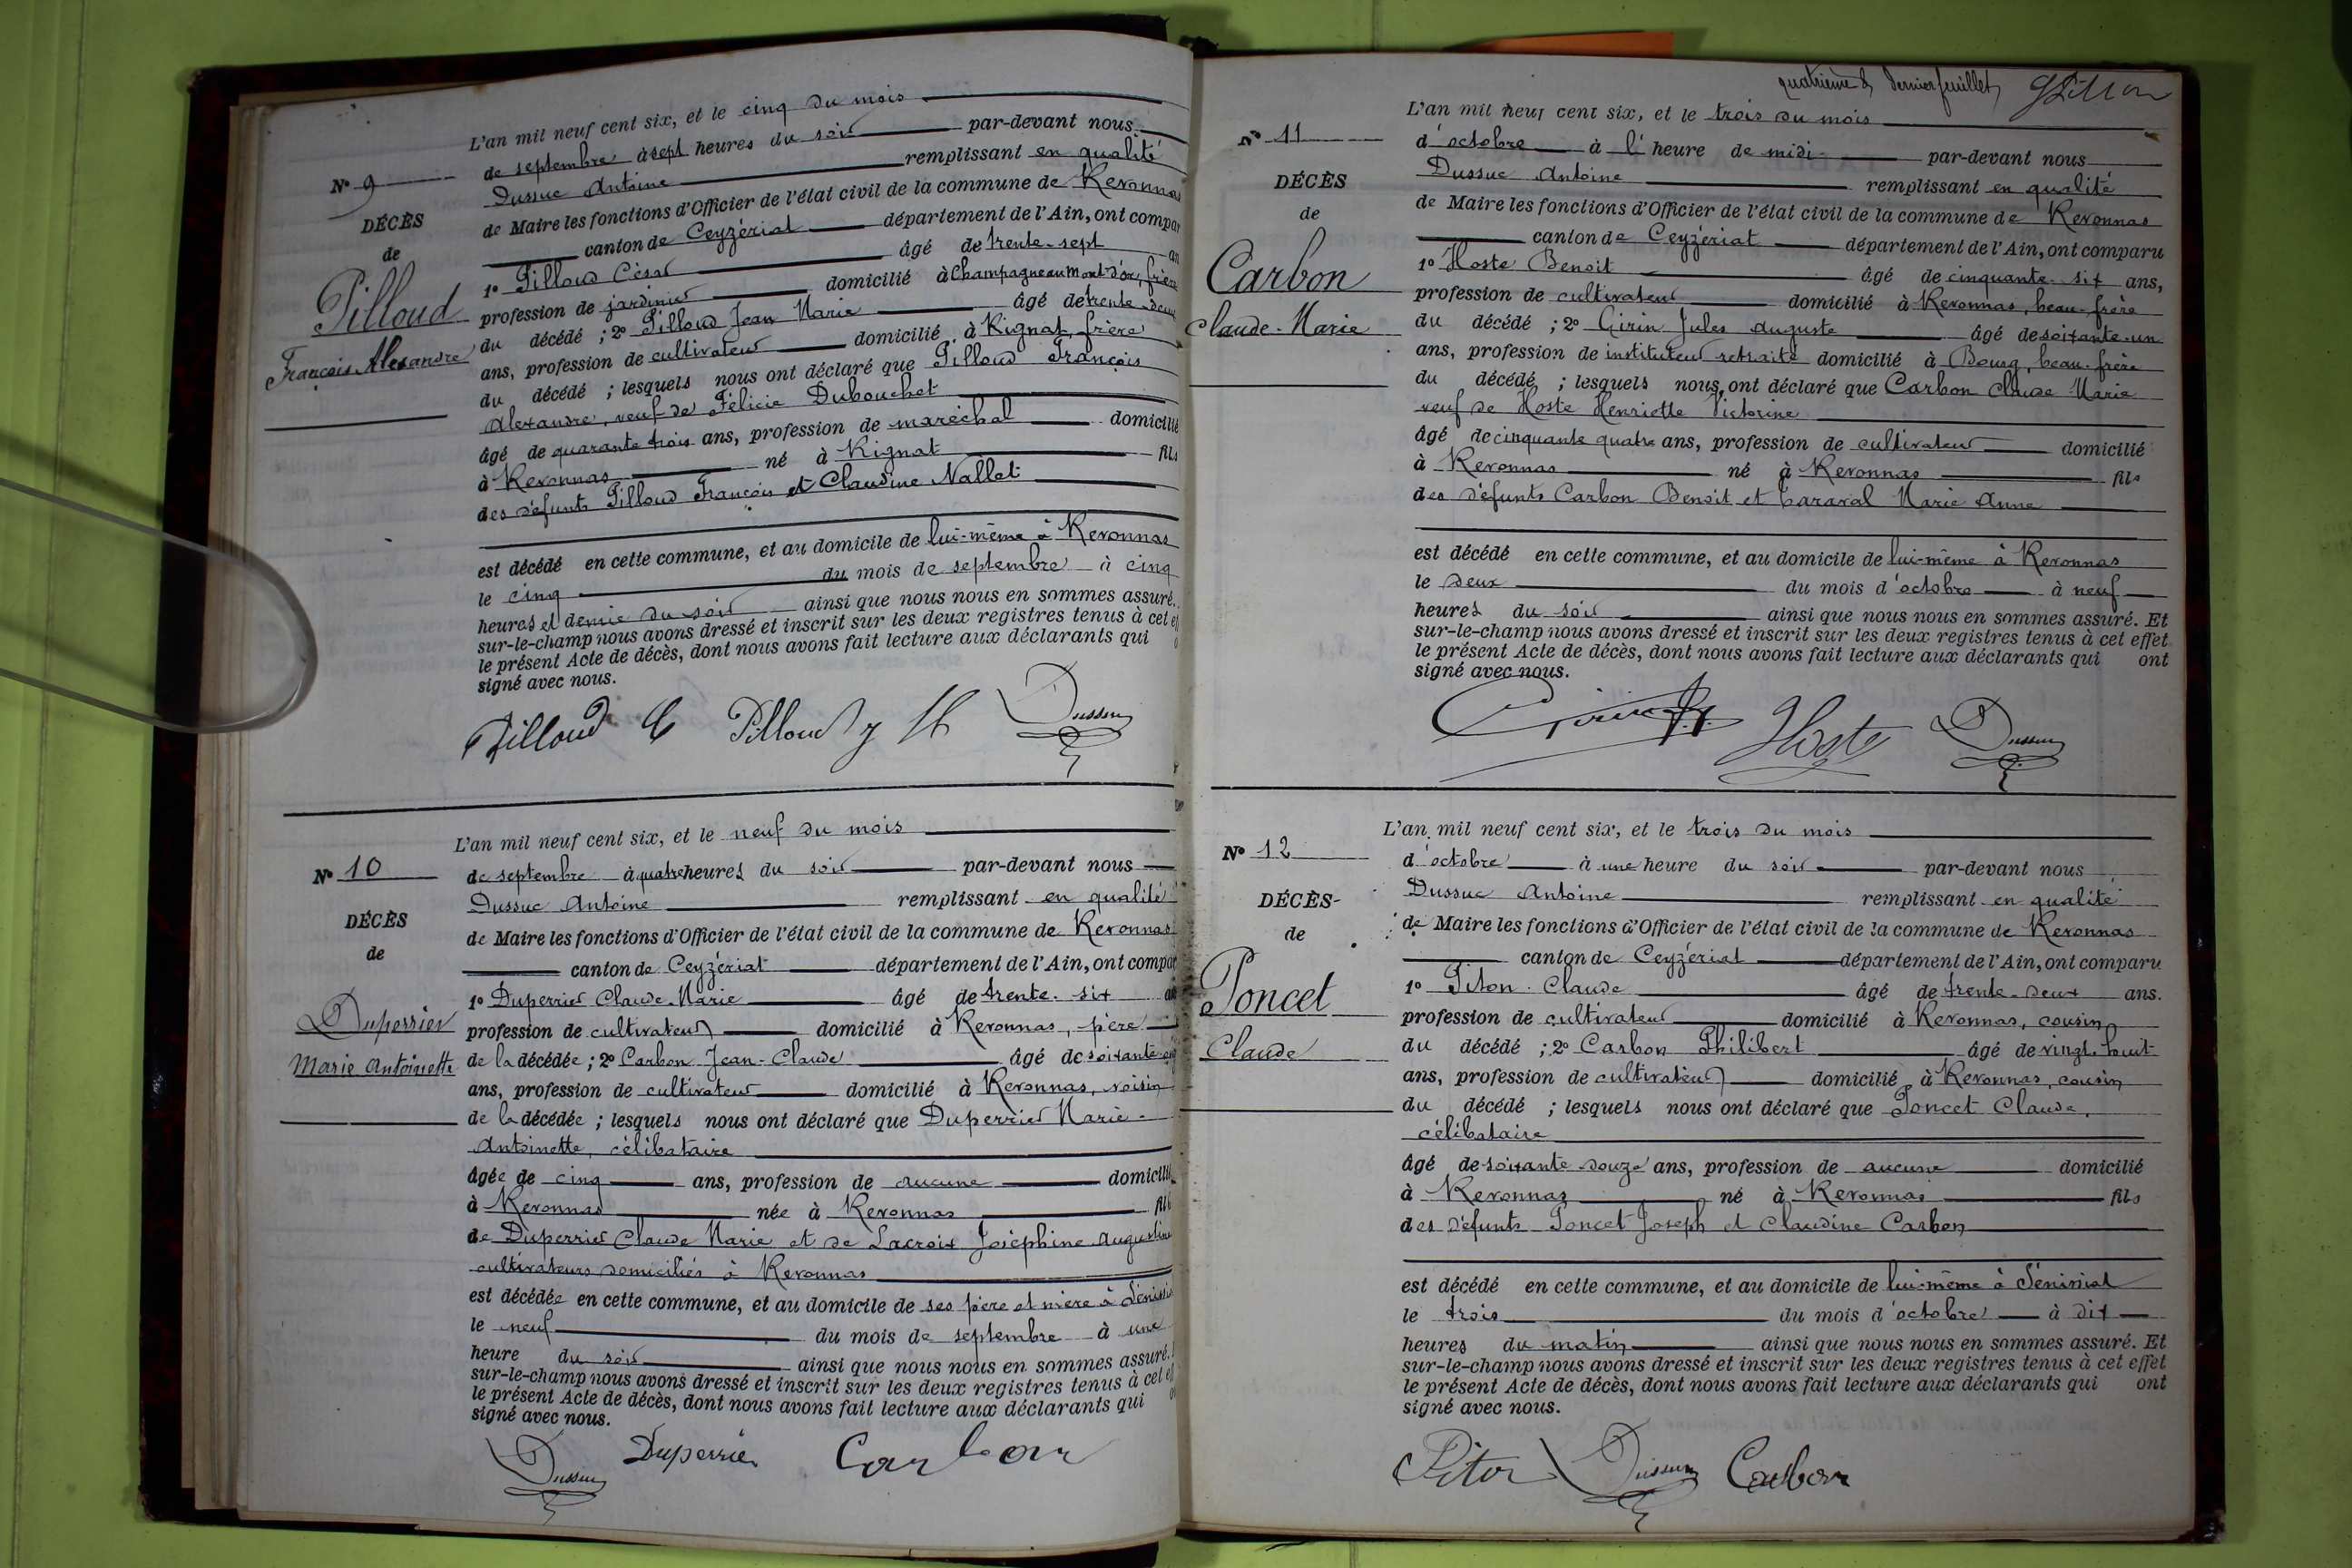 L'an mil neuf cent six, et le cinq du mois
de septembre à sept heures du soir par-devant nous
Dussuc Antoine remplissant en qualité
de Maire les fonctions d'Officier de l'état civil de la commune de Revonnas
canton de Ceyzériat département de l'Ain, ont compar
1º Pilloud César âgé de trente-sept an
profession de jardinier domicilié à Champagne au Mont-d'or, frère
du décédé ; 2º Pilloud Jean Marie âgé de trente-deux
ans, profession de cultivateur domicilié à Rignat, frère
du décédé ; lesquels nous ont déclaré que Pilloud François
Alexandre, veuf de Félicie Dubouchet
âgé de quarante trois ans, profession de maréchal domicilié
à Revonnas né à Rignat fils
des défunts Pilloud François et Claudine Nallet
est décédé en cette commune, et au domicile de lui-même à Revonnas
le cinq du mois de septembre à cinq
heures et demie du soir ainsi que nous nous en sommes assuré.
sur-le-champ nous avons dressé et inscrit sur les deux registres tenus à cet ef
le présent Acte de décès, dont nous avons fait lecture aux déclarants qui o
signé avec nous.
Pilloud C Pilloud J M Dussuc
Nº 9
DÉCÈS
de
Pilloud
François Alexandre
L'an mil neuf cent six, et le neuf du mois
de septembre à quatre heures du soir par-devant nous
Dussuc Antoine remplissant en qualité
de Maire les fonctions d'Officier de l'état civil de la commune de Revonnas
canton de Ceyzériat département de l'Ain, ont compar
1º Duperrier Claude-Marie âgé de trente-six an
profession de cultivateur domicilié à Revonnas, père
de la décédée ; 2º Carbon Jean-Claude âgé de soixante
ans, profession de cultivateur domicilié à Revonnas, voisin
de la décédée ; lesquels nous ont déclaré que Duperrier Marie-
Antoinette, célibataire
âgée de cinq ans, profession de aucune domicilié
à Revonnas née à Revonnas fil
de Duperrier Claude Marie et de Lacroix Joséphine Augustine
cultivateurs domiciliés à Revonnas
est décédée en cette commune, et au domicile de ses père et mère à Sénissia
le neuf du mois de septembre à une
heure du soir ainsi que nous nous en sommes assuré.
sur-le-champ nous avons dressé et inscrit sur les deux registres tenus à cet ef
le présent Acte de décès, dont nous avons fait lecture aux déclarants qui o
signé avec nous.
Dussuc Duperrier Carbon
Nº 10
DÉCÈS
de
Duperrier
Marie Antoinette
quatrième & dernier feuillet
L'an mil neuf cent six, et le trois du mois
d'octobre à l'heure de midi par-devant nous
Dussuc Antoine remplissant en qualité
de Maire les fonctions d'Officier de l'état civil de la commune de Revonnas
canton de Ceyzériat département de l'Ain, ont comparu
1º Hoste Benoit âgé de cinquante-six ans,
profession de cultivateur domicilié à Revonnas, beau-frère
du décédé ; 2º Girin Jules Auguste âgé de soixante-un
ans, profession de instituteur retraité domicilié à Bourg, beau-frère
du décédé ; lesquels nous ont déclaré que Carbon Claude Marie
veuf de Hoste Henriette Victorine
âgé de cinquante quatre ans, profession de cultivateur domicilié
à Revonnas né à Revonnas fils
des défunts Carbon Benoit et Caraval Marie Anne
est décédé en cette commune, et au domicile de lui-même à Revonnas
le deux du mois d'octobre à neuf
heures du soir ainsi que nous nous en sommes assuré. Et
sur-le-champ nous avons dressé et inscrit sur les deux registres tenus à cet effet
le présent Acte de décès, dont nous avons fait lecture aux déclarants qui ont
signé avec nous.
Girin Hoste Dussuc
Nº 11
DÉCÈS
de
Carbon
Claude-Marie
L'an mil neuf cent six, et le trois du mois
d'octobre à une heure du soir par-devant nous
Dussuc Antoine remplissant en qualité
de Maire les fonctions d'Officier de l'état civil de la commune de Revonnas
canton de Ceyzériat département de l'Ain, ont comparu
1º Piton Claude âgé de trente-deux ans.
profession de cultivateur domicilié à Revonnas, cousin
du décédé ; 2º Carbon Philibert âgé de vingt-huit
ans, profession de cultivateur domicilié à Revonnas, cousin
du décédé ; lesquels nous ont déclaré que Poncet Claude,
célibataire
âgé de soixante douze ans, profession de aucune domicilié
à Revonnas né à Revonnas fils
des défunts Poncet Joseph et Claudine Carbon
est décédé en cette commune, et au domicile de lui-même à Sénissiat
le trois du mois d'octobre à dix
heures du matin ainsi que nous nous en sommes assuré. Et
sur-le-champ nous avons dressé et inscrit sur les deux registres tenus à cet effet
le présent Acte de décès, dont nous avons fait lecture aux déclarants qui ont
signé avec nous.
Piton Dussuc Carbon
Nº 12
DÉCÈS
de
Poncet
Claude